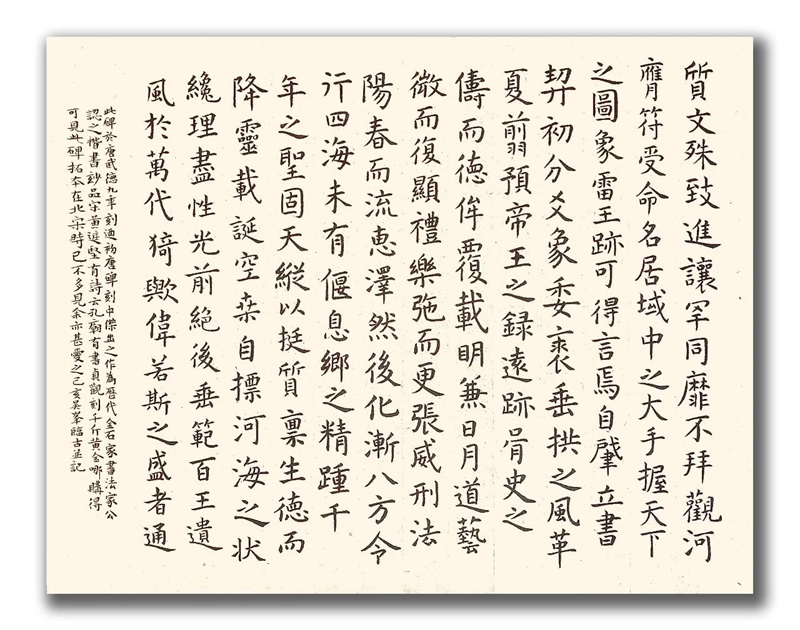 質文殊致進讓罕同靡不拜觀河
膺符受命名居域中之大手握天下
之圖象雷王跡可得言焉自肇立書
契初分爻象委裘垂拱之風革
夏翦預帝王之錄遠跡胥史之
儔而德侔覆載明兼日月道藝
微而復顯禮樂弛而更張威刑法
陽春而流惠澤然後化漸八方令
行四海未有偃息鄉之精踵千
年之聖固天縱以挺質禀生德而
降靈載誕空桒自摽河海之状
纔理盡性光前絕後垂範百王遺
風於萬代猗歟偉若斯之盛者通
此碑於唐武德九年刻迺初唐碑刻中傑出之作為歷代金石家書法家公
認之楷書妙品宋黃廷堅有詩云孔廟有書貞觀刻千斤黃金哪購得
可見此碑拓本在北宋時已不多見余亦甚愛之己亥吳峯臨古並記